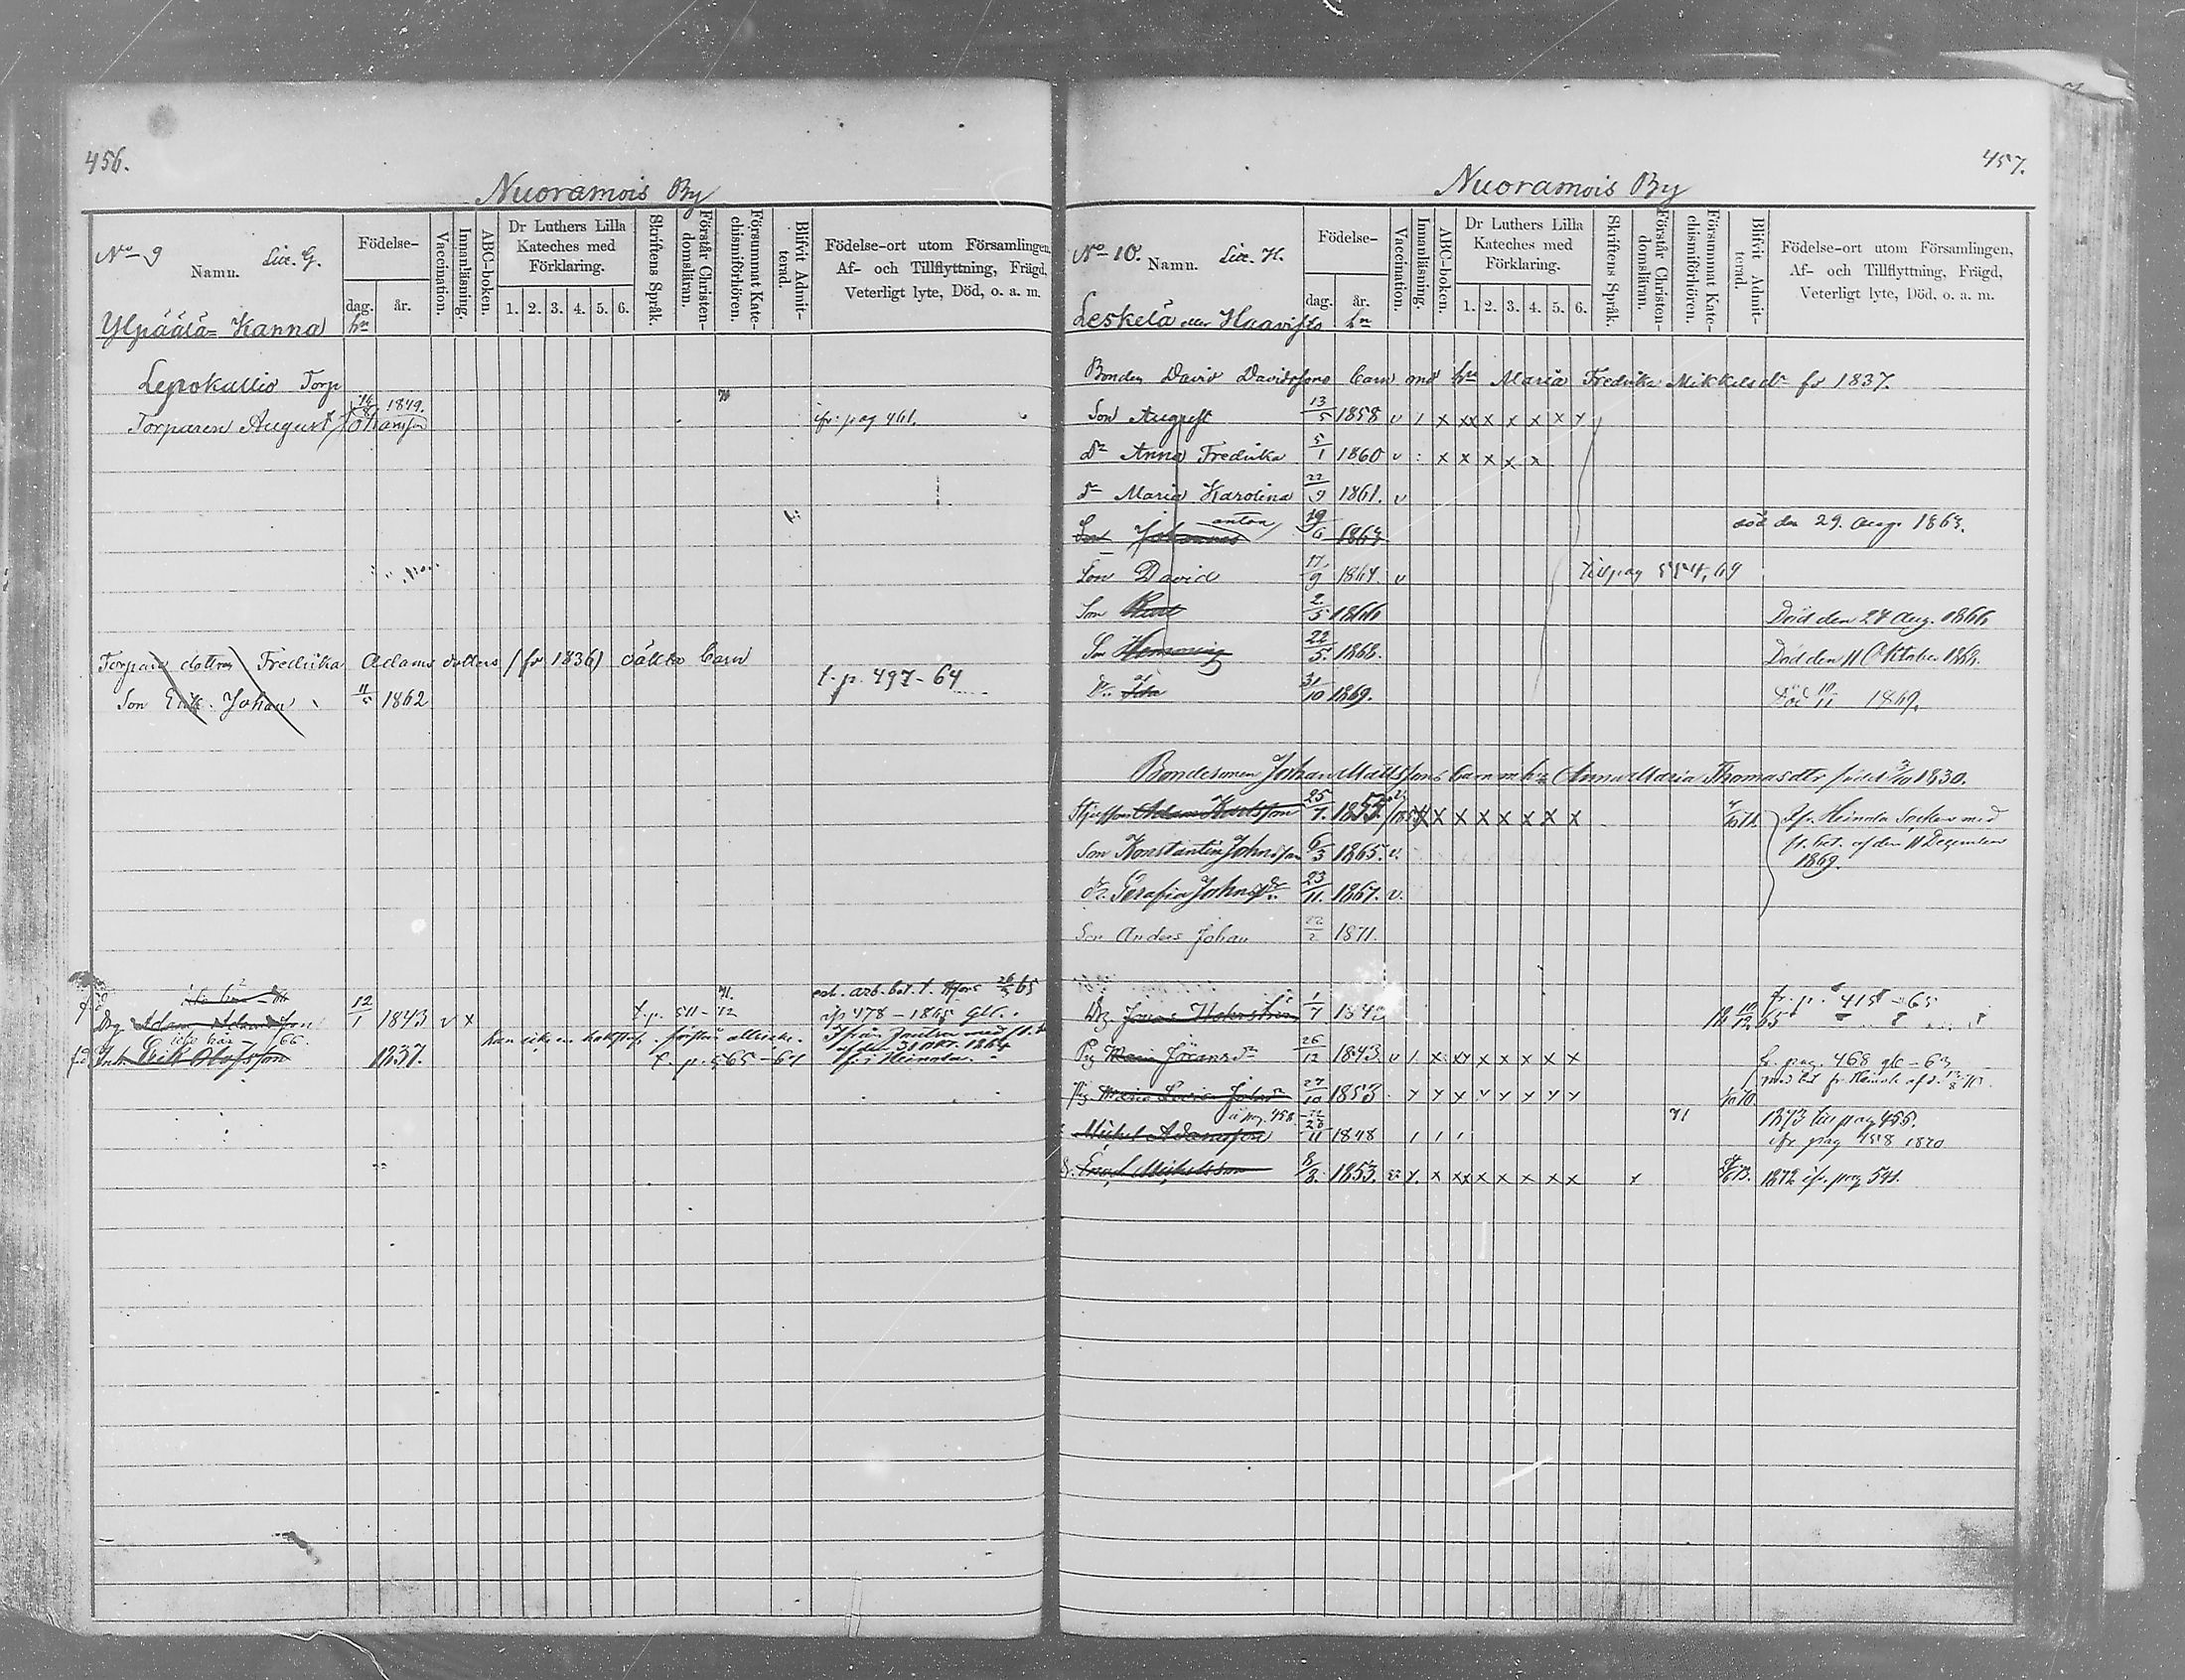 456.
Nuoramois By
No 9 Litt. G.
Namn.
Födelse-
dag.
år.
Vaccination.
Innanläsning.
ABC-boken.
Dr Luthers Lilla
Kateches med
Förklaring.
1. 2. 3. 4. 5. 6.
Skriftens Språk.
Förstår Christen-
domsläran.
Försummat Kate-
chismiförhören.
Blifvit Admit-
terad.
Födelse-ort utom Församlingen,
Af- och Tillflyttning, Frägd,
Veterligt lyte, Död, o. a. m.
Ylpäälä- Kanna
Lepokallio Torp
Torparen August Johansson 1849. ifr. pag 461.
Torpare dottren Fredrika Adams dotters (fö 1836) oäkta barn
Son Erik Johan 11/5 1862 t. p. 497-64
Drg Adam Adamsson 12/1 1843 v x t. p. 511-72
ifr 478-1865
Erik Olofsson 1837. t. p. 565-67
457.
Nuoramois By
No 10. Litt. H.
Namn.
Födelse-
dag.
år.
Vaccination.
Innanläsning.
ABC-boken.
Dr Luthers Lilla
Kateches med
Förklaring.
1. 2. 3. 4. 5. 6.
Skriftens Språk.
Förstår Christen-
domsläran.
Försummat Kate-
chismiförhören.
Blifvit Admit-
terad.
Födelse-ort utom Församlingen,
Af- och Tillflyttning, Frägd,
Veterligt lyte, Död, o. a. m.
Leskelä eller Haavisto
Bonden David Davidssons barn med hu Maria Fredrika Mikkelsdr fö 1837.
Son August 13/5 1858 v / x xx x x x x x
dr Anna Fredrika 5/1 1860 v : x x x x x
dr Maria Karolina 22/9 1861. v
Son Johannes anton 19/6 1863 död den 29. Aug. 1863.
Son David 17/9 1864. v till pag 554, 69
Son 2/5 1866 Död den 27 Aug. 1866
Son Hemming 22/5. 1868. Död den 11 Oktober 1868.
Dr. Ida 31/10 1869. Död 10/11 1869.
Bondesonen Johan Mattssons barn m. hu Anna Maria Thomasdtr född 3/10 1830.
Styfson Adam Karlsson 25/7. 1853. x x x x x x x
Ifr. Heinola Socken med
fl. bet. af den 11 Dezember
1869.
Son Konstantin Johnsson 6/3 1865. v.
dr. Serafia Johnsdr. 23/11. 1867. v.
Son Anders Johan 22/2 1871.
Drg Jonas 1/7 1842 fr. p. 415-65
Pig Maria Göransdr 26/12 1843. v / x xx x x x x x fr. pag. 468
Pig Maria Lovisa Johsdr 27/10 1853
Mickel Adamsson 1848 / / / 71 1873 till pag 455.
ifr pag 458 1870
Enoch Mickelsson 8/8. 1853. x xx x x x x x x 1872 ifr. pag 541.